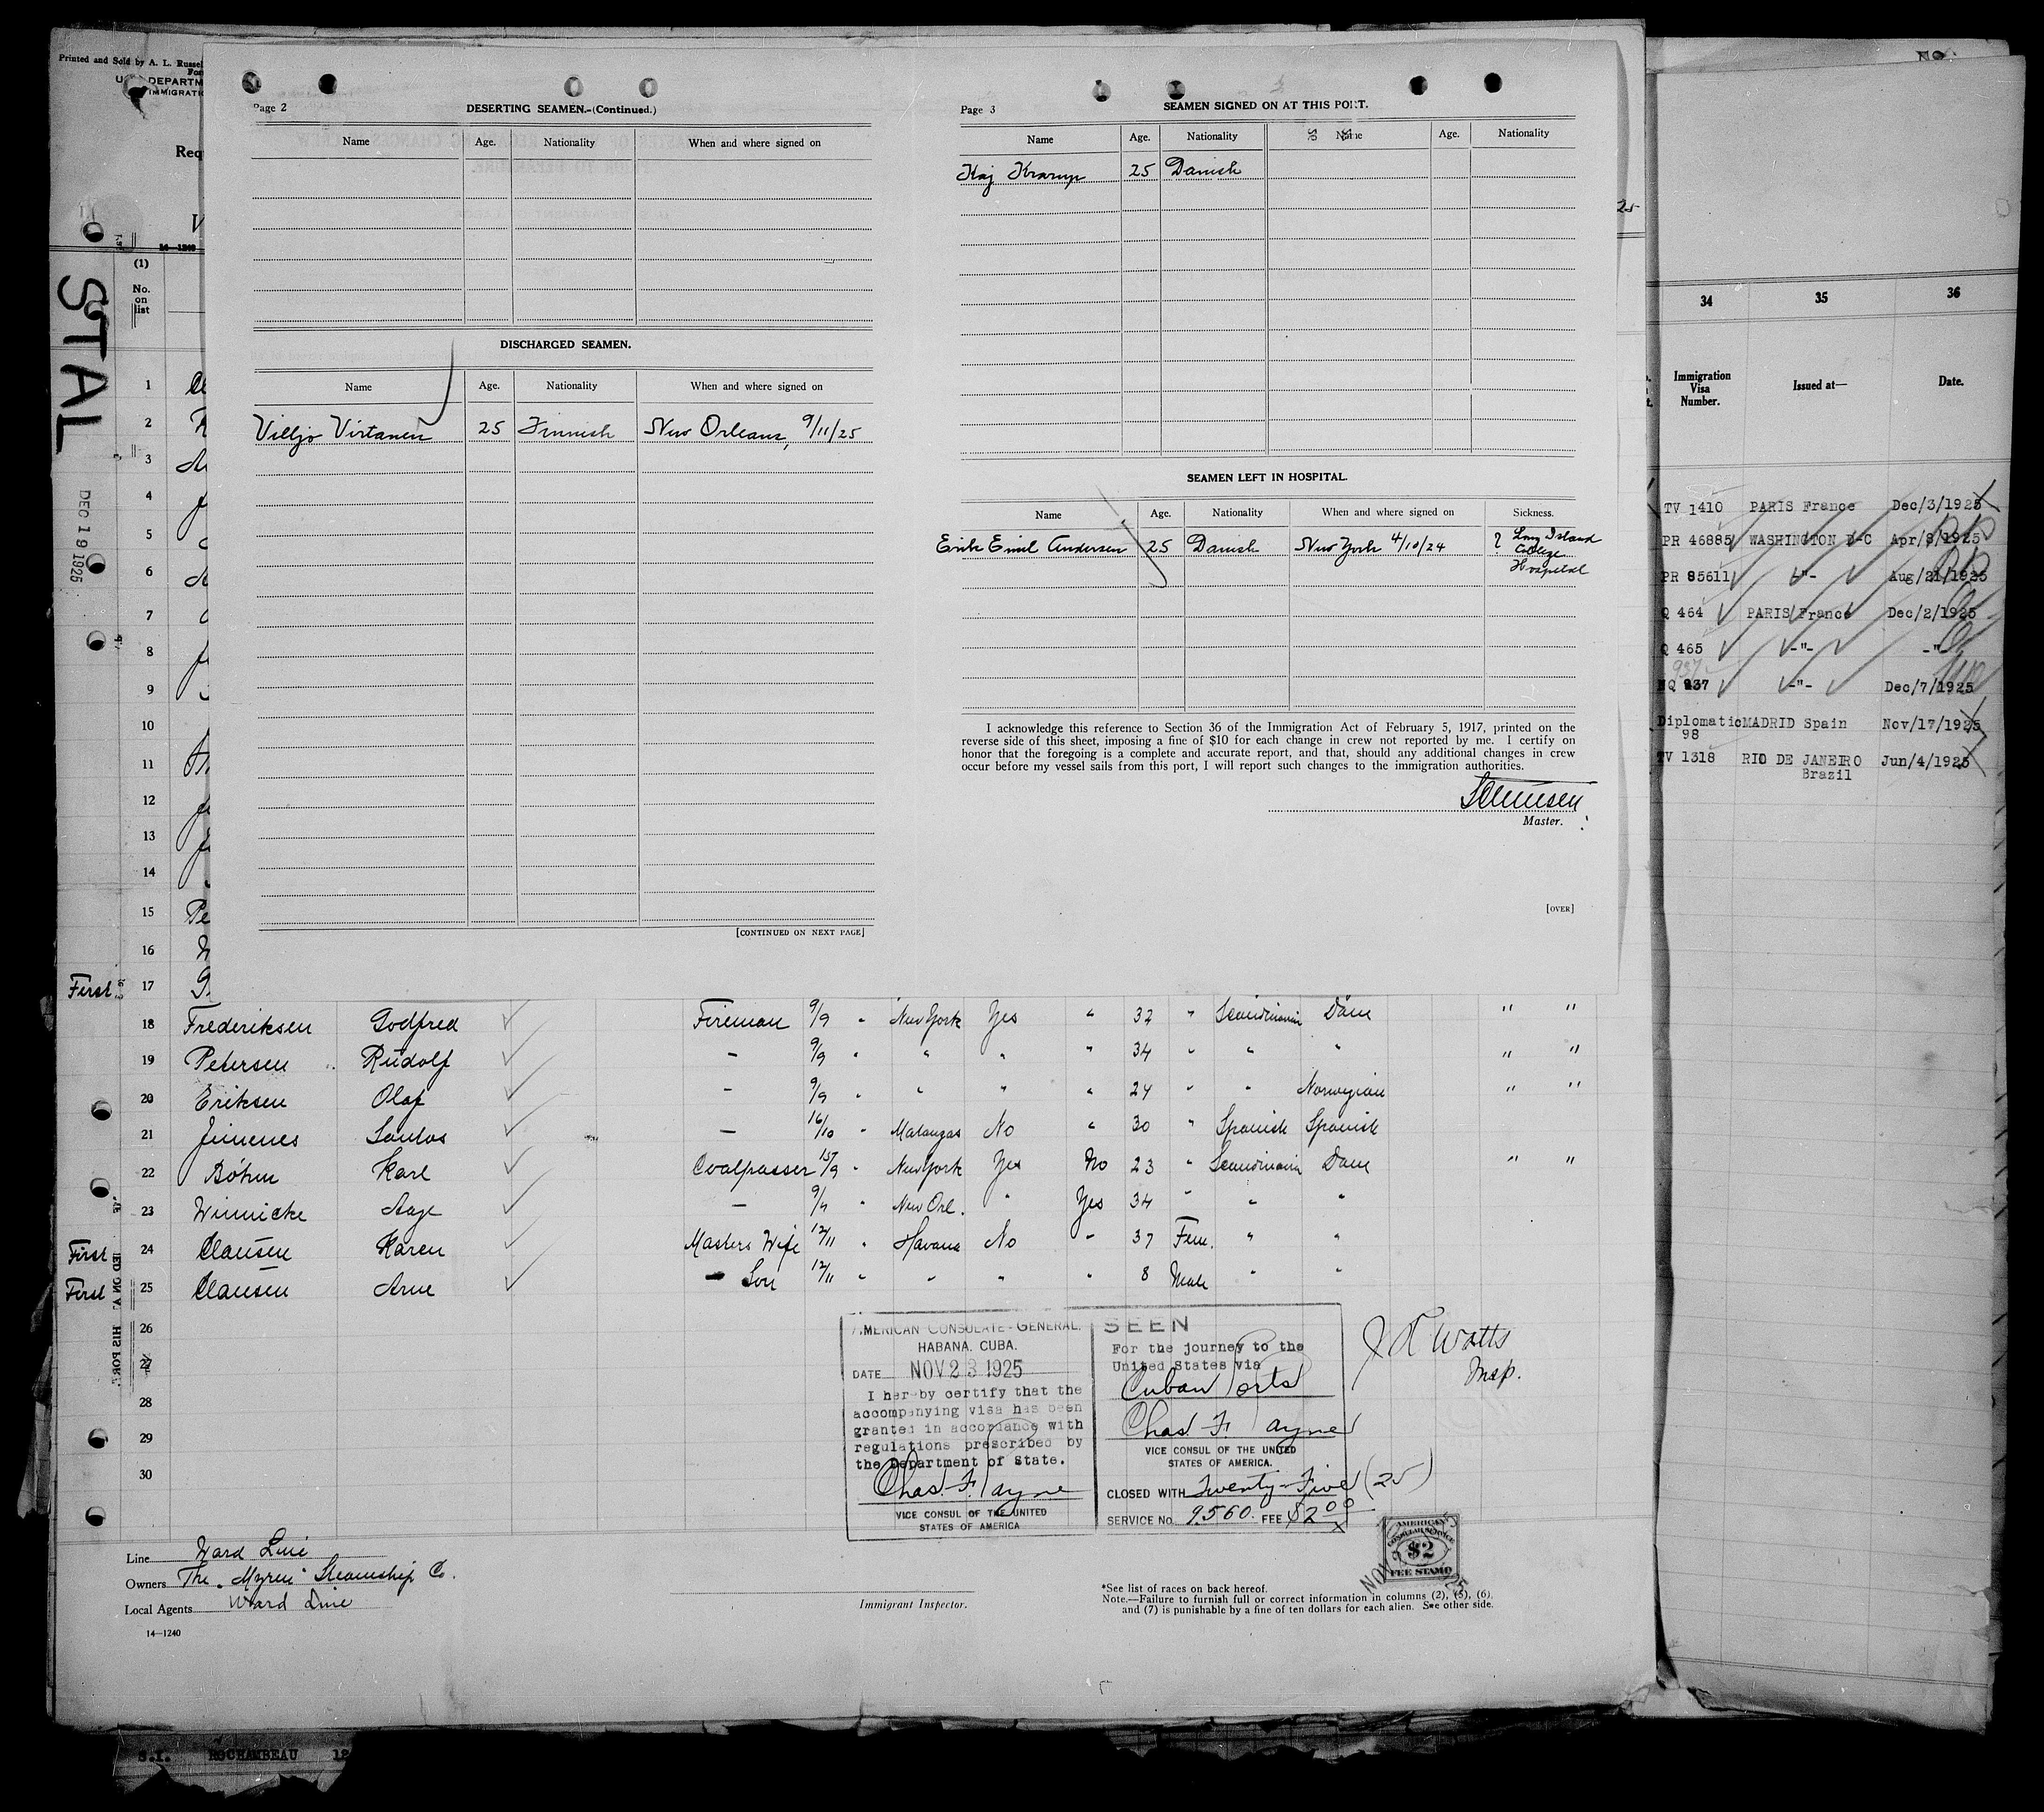 Printed and Sold by A. L. Russel
U. S. DEPARTM
IMMIGRATIO
Req
14—1240
STAL
DEC 19 1925
(1)
No.
on
list
Page 2
DESERTING SEAMEN.-(Continued.)
Name Age. Nationality When and where signed on
DISCHARGED SEAMEN.
Name Age. Nationality When and where signed on
Villjo Virtanen 25 Finnish New Orleans, 9/11/25
[CONTINUED ON NEXT PAGE]
Page 3
SEAMEN SIGNED ON AT THIS PORT.
Name Age. Nationality Name Age. Nationality
Kaj Krarup 25 Danish
SEAMEN LEFT IN HOSPITAL.
Name Age. Nationality When and where signed on Sickness.
Erik Emil Andersen 25 Danish New York 4/10/24 ? Long Island
College
Hospital
I acknowledge this reference to Section 36 of the Immigration Act of February 5, 1917, printed on the
reverse side of this sheet, imposing a fine of $10 for each change in crew not reported by me. I certify on
honor that the foregoing is a complete and accurate report, and that, should any additional changes in crew
occur before my vessel sails from this port, I will report such changes to the immigration authorities.
Master.
[OVER]
34 35 36
Immigration
Visa
Number.
Issued at— Date.
TV 1410 PARIS France Dec/3/1925
PR 46885 WASHINGTON D-C Apr/8/1925
PR 85611 -"- Aug/21/1925
Q 464 PARIS France Dec/2/1925
Q 465 -"- -"-
937
NQ 937 -"- Dec/7/1925
Diplomatic MADRID Spain Nov/17/1925
98
TV 1318 RIO DE JANEIRO Jun/4/1925
Brazil
1
2
3
4
5
6
7
8
9
10
11
12
13
14
15 Pe
16
First 17
18 Frederiksen Godfred Fireman 9/9 " New York Yes " 32 " Scandinavian Dane " "
19 Petersen Rudolf - 9/9 " " " " 34 " " " " "
20 Eriksen Olaf - 9/9 " " " " 24 " " Norwegian " "
21 Jimenes Santos - 16/10 " Matanzas No " 30 " Spanish Spanish
22 Böhm Karl Coalpasser 15/9 " New York Yes No 23 " Scandinavia Dane " "
23 Winnicke Aage - 9/9 " New Orl. " Yes 34 " " "
First 24 Clausen Karen Masters Wife 12/11 " Havana No " 37 Fem. " "
First 25 Clausen Arne - Son 12/11 " " " " 8 Male " "
26
27
28
29
30
AMERICAN CONSULATE-GENERAL.
HABANA. CUBA.
DATE NOV 23 1925
I hereby certify that the
accompanying visa has been
granted in accordance with
regulations prescribed by
the Department of State.
Chas. F. Payne
VICE CONSUL OF THE UNITED
STATES OF AMERICA
SEEN
For the journey to the
United States via
Cuban Ports
Chas F. Payne
VICE CONSUL OF THE UNITED
STATES OF AMERICA.
CLOSED WITH Twenty-Five (25)
SERVICE No. 9560. FEE $2.00
J Watts
Insp.
AMERICAN
CONSULAR SERVICE
$2
FEE STAMP
Line Ward Line
Owners The "Myren" Steamship Co.
Local Agents Ward Line
14—1240
Immigrant Inspector.
*See list of races on back hereof.
Note.—Failure to furnish full or correct information in columns (2), (5), (6),
and (7) is punishable by a fine of ten dollars for each alien. See other side.
S.I. ROCHAMBEAU 12